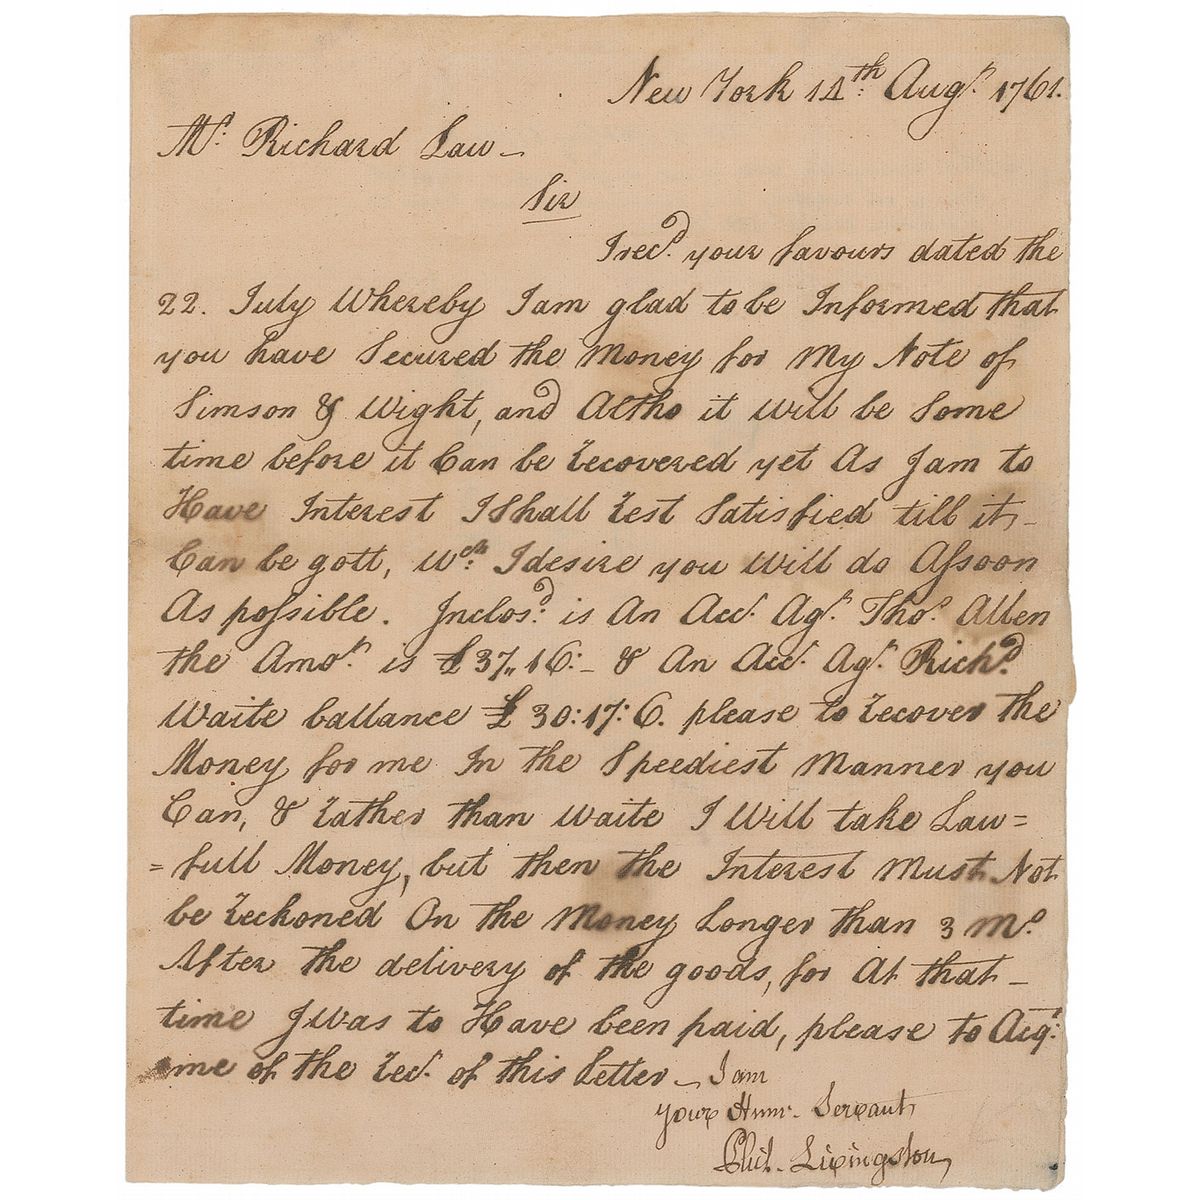 New York 14th: Augt. 1761.
Mr. Richard Law –
Sir
I recd. your favours dated the
22. July Whereby I am glad to be Informed that
you have Secured the Money for My Note of
Simson & Wight, and Altho it Will be Some
time before it Can be Recovered yet As I am to
Have Interest I Shall rest Satisfied till it –
Can be gott, Wch: I desire you Will do Assoon
As possible. Inclosd. is An Acct. Agt. Thos. Allen
the Amot. is £37,,16:– & An Acct. Agt. Richd.
Waite ballance £30:17:6. please to recover the
Money for me In the Speediest Manner you
Can, & rather than Waite I Will take Law=
=full Money, but then the Interest Must Not
be reckoned On the Money Longer than 3 Mo.
After the delivery of the goods, for At that –
time I was to Have been paid, please to Acqt:
me of the rect. of this Letter – I am
your Hum. Servant
Phil. Livingston